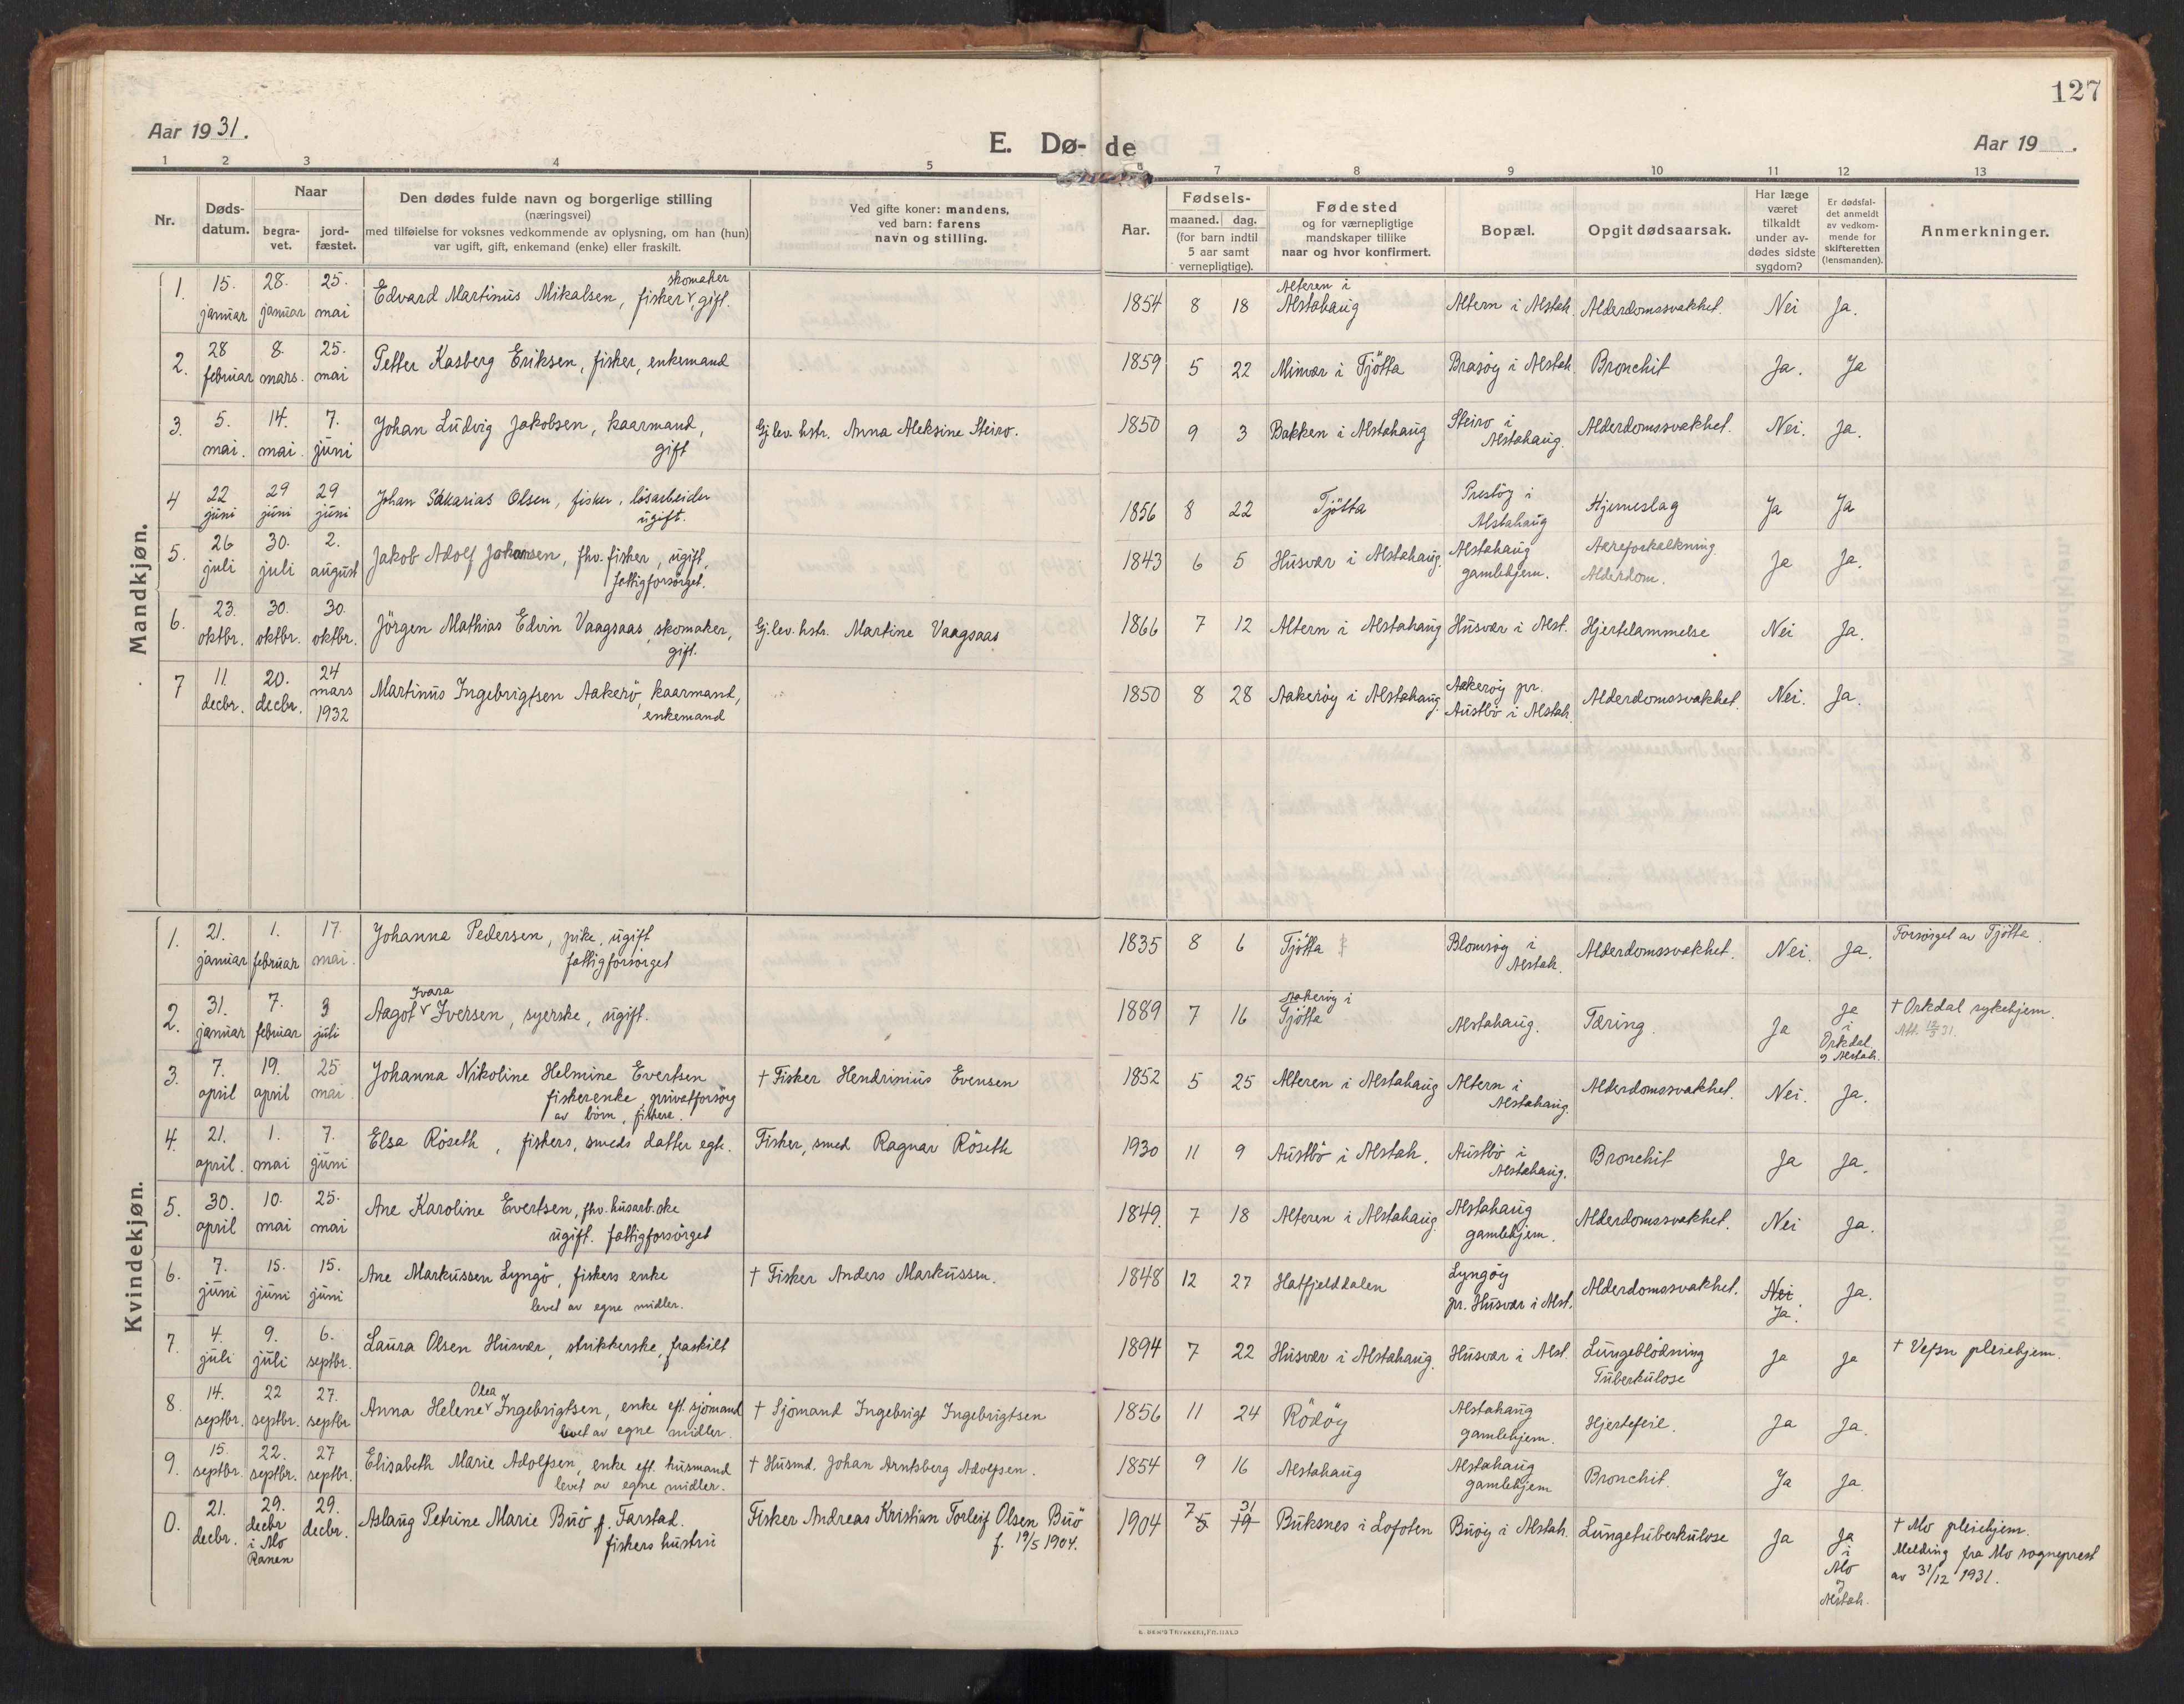 127
Aar 1931.
E. Dø- de
Aar 19 .
1 2 3 4 5 7 8 9 10 11 12 13
Nr. Døds-datum. Naar begra-vet. jord-fæstet. Den dødes fulde navn og borgerlige stilling (næringsvei) med tilføielse for voksnes vedkommende av oplysning, om han (hun) var ugift, gift, enkemand (enke) eller fraskilt. Ved gifte koner: mandens, ved barn: farens navn og stilling. Aar. Fødsels- maaned. dag. (for barn indtil 5 aar samt vernepligtige). Fødested og for værnepligtige mandskaper tillike naar og hvor konfirmert. Bopæl. Opgit dødsaarsak. Har læge været tilkaldt under av-dødes sidste sygdom? Er dødsfal-det anmeldt av vedkom-mende for skifteretten (lensmanden). Anmerkninger.
Mandkjøn.
1. 15. januar 28. januar 25. mai Edvard Martinus Mikalsen, fisker, skomaker gift. 1854 8 18 Alteren i Alstahaug Altern i Alstah. Alderdomssvakhet. Nei Ja.
2. 28 februar 8. mars. 25. mai Petter Kasberg Eriksen, fisker, enkemand 1859 5 22 Minvær i Tjötta Brasöy i Alstah. Bronchit Ja. Ja
3. 5. mai. 14. mai. 7. juni Johan Ludvig Jakobsen, kaarmand, gift Gj.lev. hstr. Anna Aleksine Steiro. 1850 9 3 Bakken i Alstahaug Steiro i Alstahaug. Alderdomssvakhet. Nei. Ja.
4 22 juni 29 juni 29 juni Johan Sakarias Olsen, fisker, lösarbeider ugift. 1856 8 22 Tjötta Prestöy i Alstahaug Hjerneslag Ja Ja
5. 26 juli 30. juli 2. august Jakob Adolf Johansen, fhv. fisker, ugift, fattigforsörget. 1843 6 5 Husvær i Alstahaug. Alstahaug gamlehjem. Aareforkalkning Alderdom. Ja Ja.
6. 23. oktbr. 30. oktbr. 30. oktbr. Jörgen Mathias Edvin Vaagsaas, skomaker, gift. Gj.lev. hstr. Martine Vaagsaas 1866 7 12 Altern i Alstahaug Husvær i Alst. Hjertelammelse Nei Ja.
7 11. decbr. 20. decbr. 24 mars 1932 Martinus Ingebrigtsen Aakerö, kaarmand, enkemand 1850 8 28 Aakeröy i Alstahaug. Aakeröy pr. Austbö i Alstah. Alderdomssvakhet. Nei. Ja.
Kvindekjøn.
1. 21. januar 1. februar 17. mai. Johanna Pedersen, pike, ugift fattigforsörget 1835 8 6 Tjötta Blomsöy i Alstah. Alderdomssvakhet. Nei. Ja. Forsörget av Tjötta.
2. 31. januar 7. februar 3 juli Aagot Ivara Iversen, syerske, ugift. 1889 7 16 Aakeröy i Tjötta Alstahaug. Tæring. Ja Ja i Orkdal og Alstah. † Orkdal sykehjem.
3. 7. april 19. april 25 mai Johanna Nikoline Helmine Evertsen fiskerenke, privatforsörg av börn, fiskere. † Fisker Hendrinius Evensen 1852 5 25 Alteren i Alstahaug Altern i Alstahaug. Alderdomssvakhet. Nei. Ja.
4. 21. april. 1. mai 7. juni Elsa Röseth, fiskers, smeds datter egte. Fisker, smed Ragnar Röseth 1930 11 9 Austbö i Alstah. Austbö i Alstahaug. Bronchit Ja Ja.
5. 30. april 10. mai 25. mai Ane Karoline Evertsen, fhv. husarb.ske ugift. fattigforsörget 1849. 7 18 Alteren i Alstahaug. Alstahaug gamlehjem. Alderdomssvakhet. Nei Ja.
6. 7. juni 15. juni 15. juni Ane Markussen Lyngö, fiskers enke levet av egne midler. † Fisker Anders Markussen. 1848 12 27 Hatfjelddalen Lyngöy pr. Husvær i Alst. Alderdomssvakhet. Nei Ja. Ja.
7. 4. juli 9. juli 6. septbr. Laura Olsen Husvær, strikkerske, fraskilt 1894 7 22 Husvær i Alstahaug. Husvær i Alst. Lungeblödning Tuberkulose Ja Ja † Vefsn pleiehjem.
8. 14. septbr. 22 septbr. 27. septbr Anna Helene Olea Ingebrigtsen, enke eft. sjömand levet av egne midler. † Sjömand Ingebrigt Ingebrigtsen 1856 11 24 Rödöy Alstahaug gamlehjem. Hjertefeil. Ja Ja.
9. 15. septbr. 22. septbr. 27 septbr. Elisabeth Marie Adolfsen, enke eft. husmand levet av egne midler. † Husmd. Johan Arntsberg Adolfsen. 1854 9 16 Alstahaug Alstahaug gamlehjem Bronchit. Ja Ja.
0. 21. decbr. 29. decbr i Mo Ranen 29. decbr. Aslaug Petrine Marie Buö f. Farstad. fiskers hustru Fisker Andreas Kristian Torleif Olsen Buö f. 19/5 1904. 1904 7 5 31 19 Buksnes i Lofoten Buöy i Alstah. Lungetuberkulose Ja Ja i Mo og Alstah. † Mo pleiehjem. Melding fra Mo sogneprest av 31/12 1931.